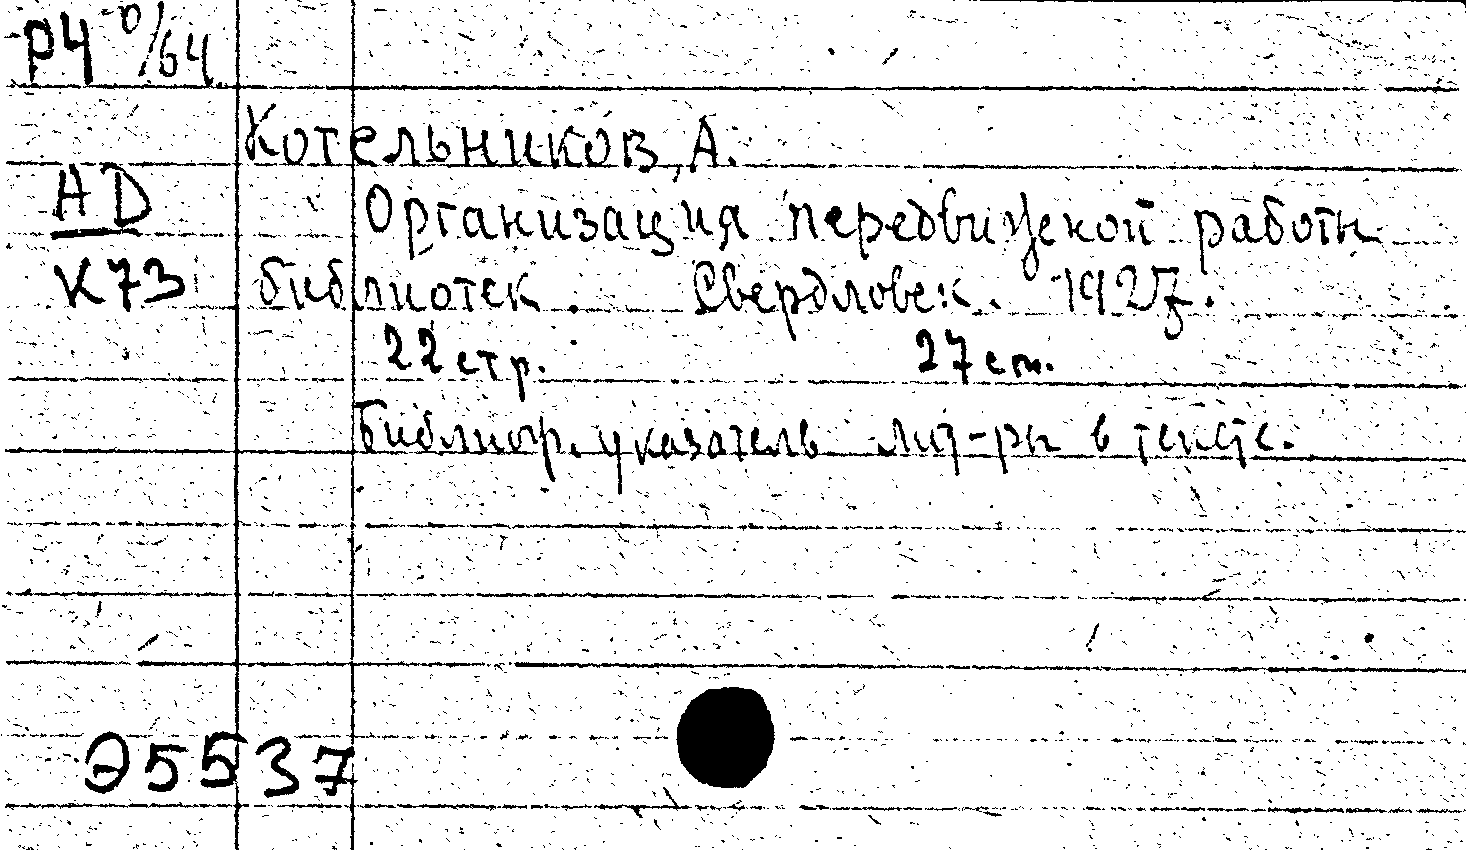 Р4 0/64
Котельников, А.
НD Организация передвижной работы
К73 библиотек. Свердловск. 1927.
22 стр. 27 cm.
Библиогр. указатель лит-ры в тексте.
Э5537